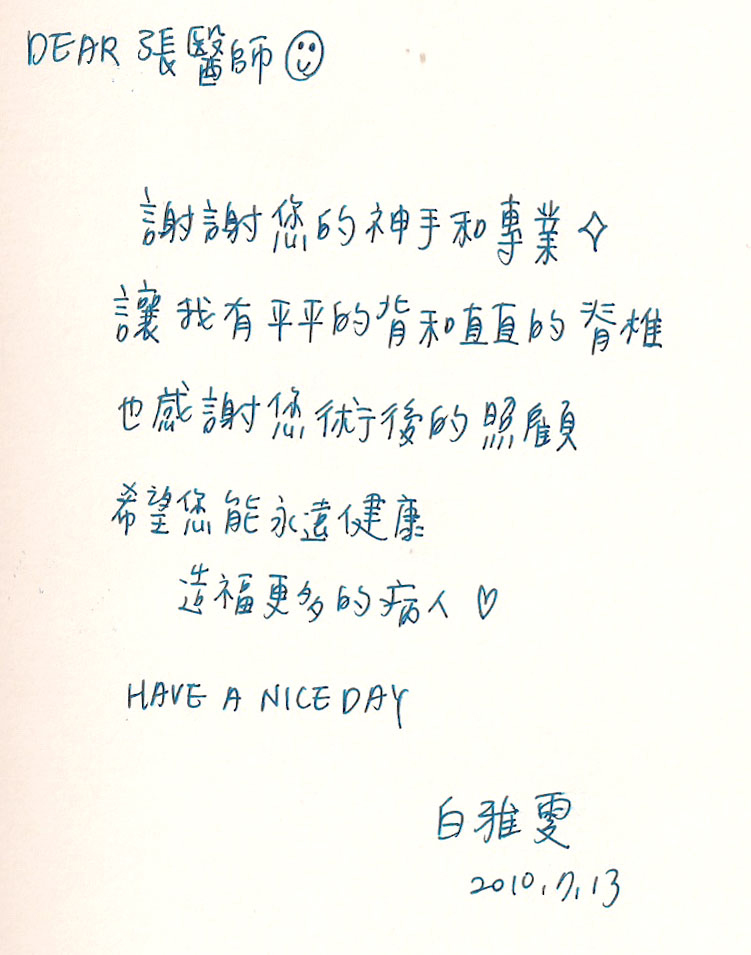 DEAR 張醫師
謝謝您的神手和專業
讓我有平平的背和直直的脊椎
也感謝您術後的照顧
希望您能永遠健康
造福更多的病人
HAVE A NICE DAY
白雅雯
2010.7.13